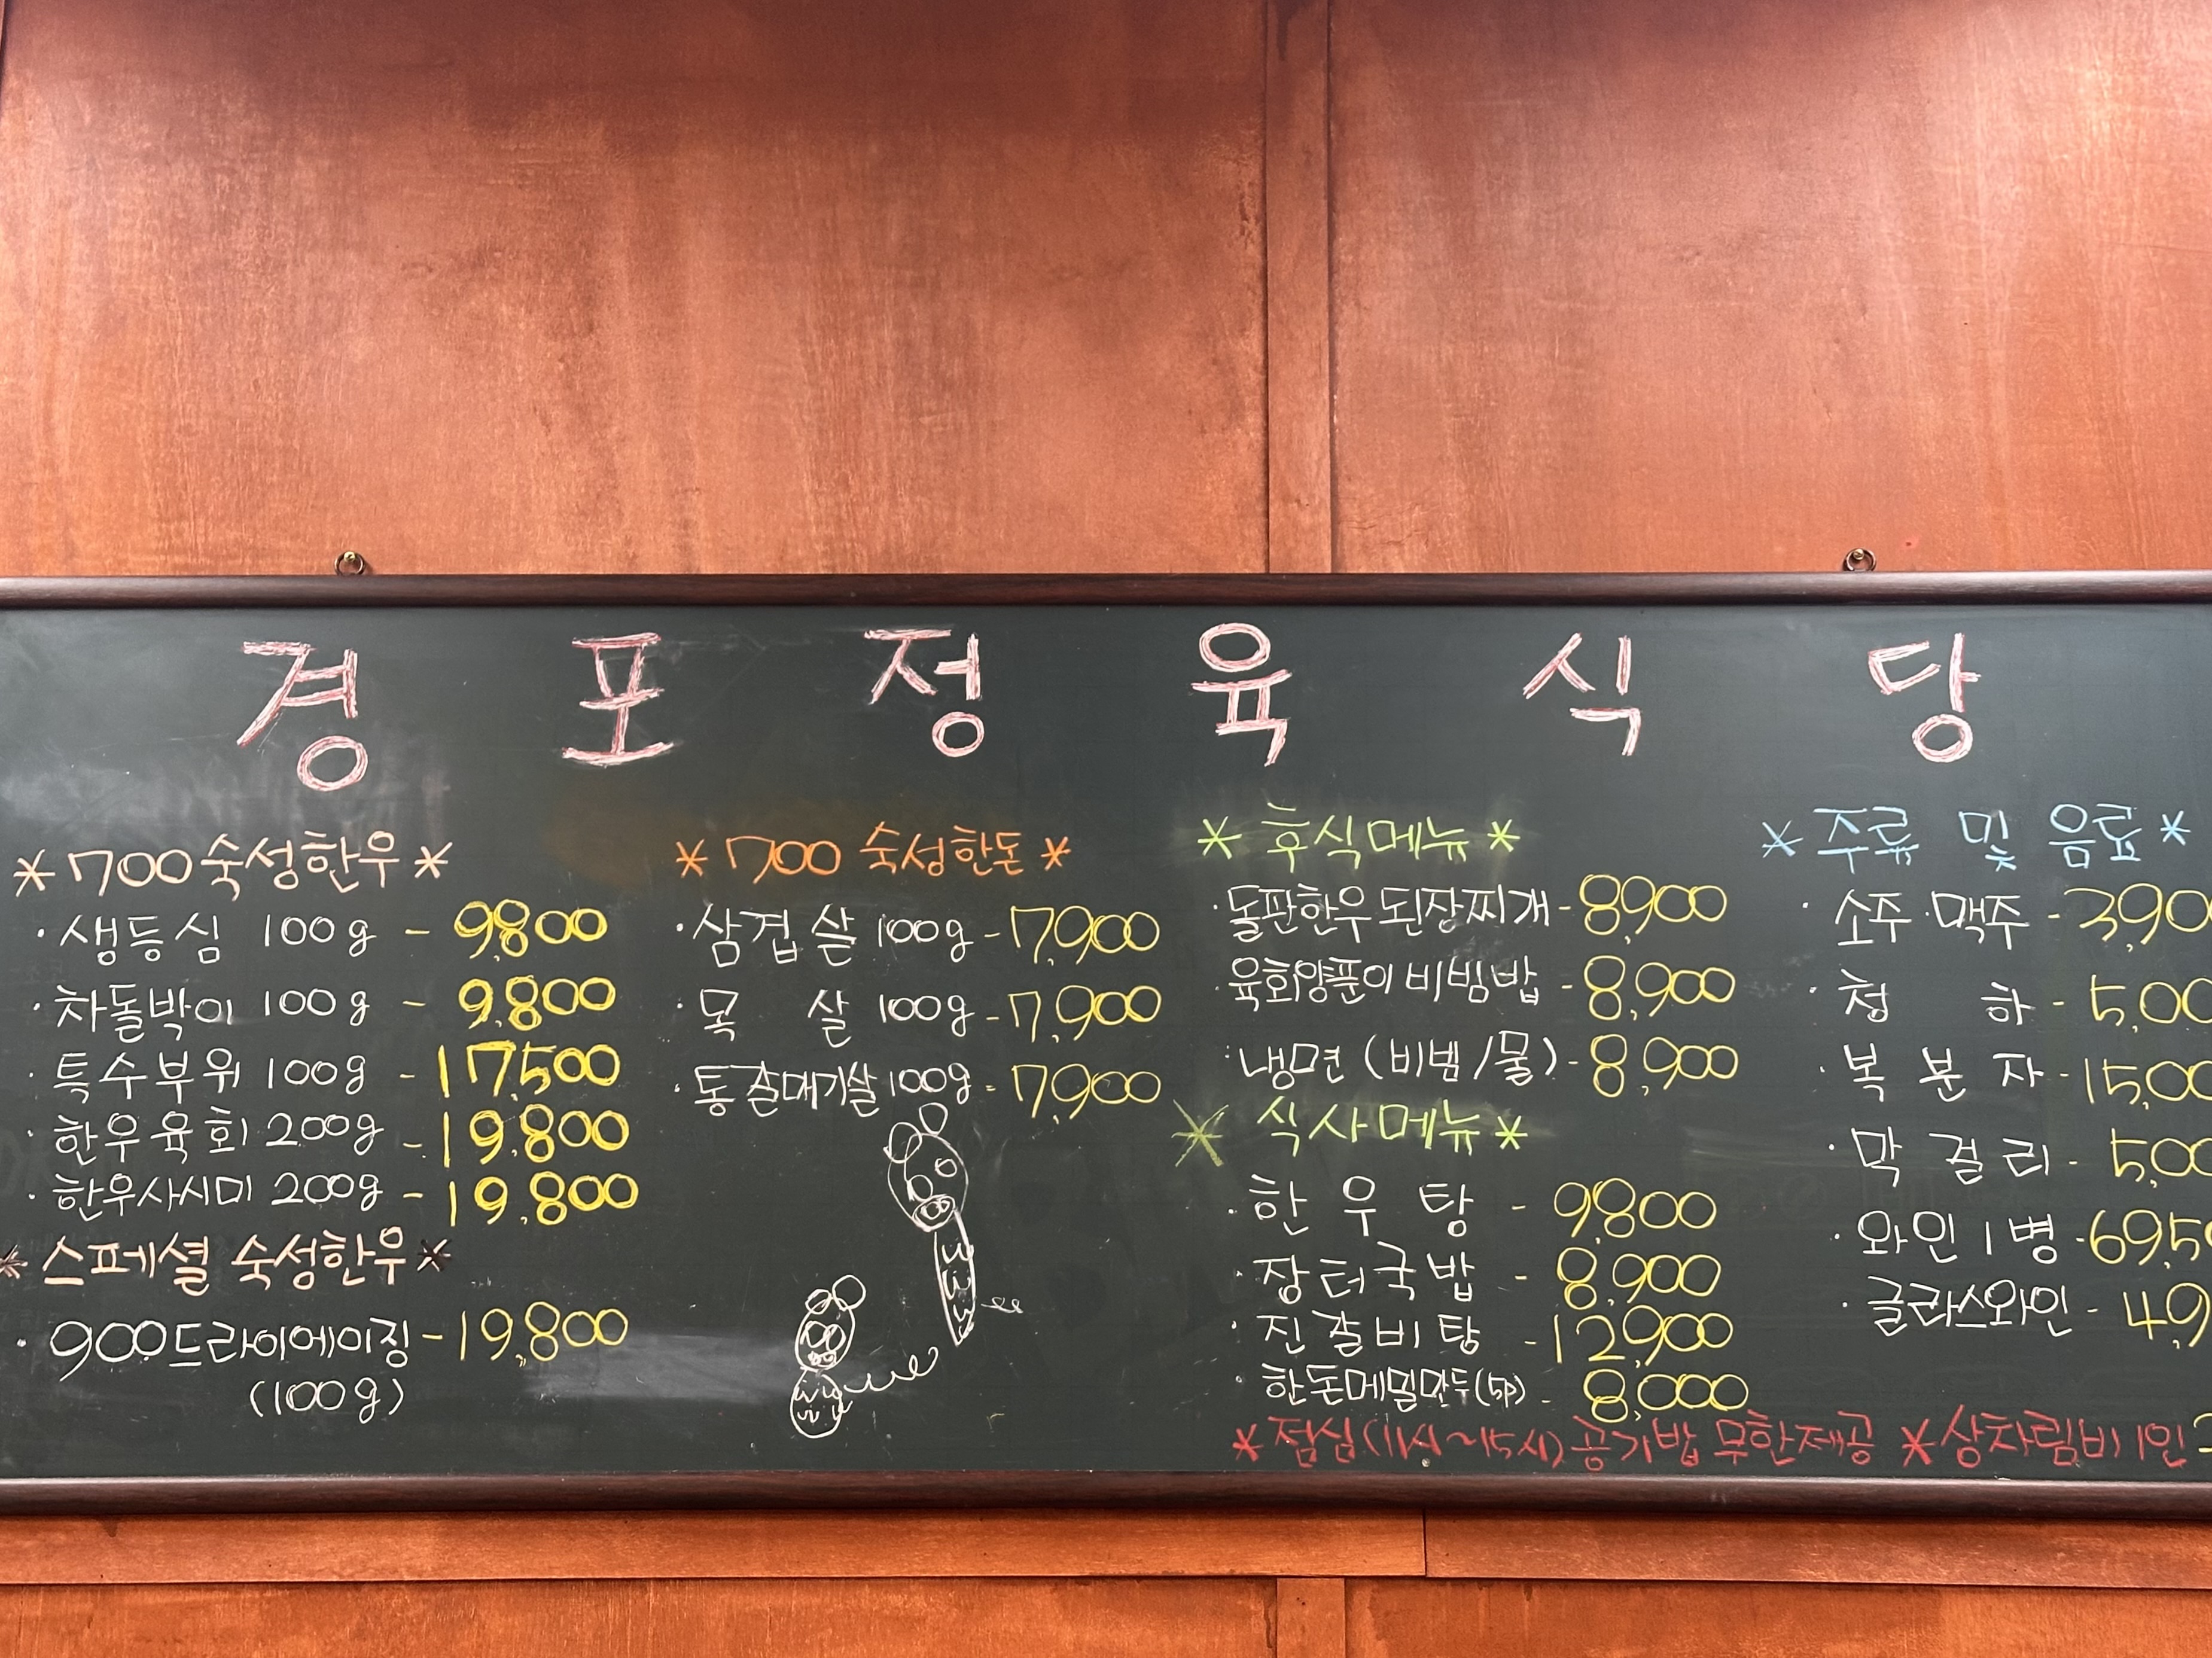 경포정육식당
*700숙성한우*
·생등심 100g - 9,800
·차돌박이 100g - 9,800
·특수부위 100g - 17,500
·한우육회 200g - 19,800
·한우사시미 200g - 19,800
*스페셜 숙성한우*
·900드라이에이징 - 19,800
(100g)
*700 숙성한돈*
·삼겹살 100g - 7,900
·목살 100g - 7,900
·통갈매기살 100g - 7,900
*후식메뉴*
·돌판한우 된장찌개 - 8,900
·육회양푼이 비빔밥 - 8,900
·냉면 (비빔/물) - 8,900
*식사메뉴*
·한우탕 - 9,800
·장터국밥 - 8,900
·진갈비탕 - 12,900
·한돈메밀만두(5p) - 8,000
*주류 및 음료*
·소주·맥주 - 3,90
·청하 - 5,00
·복분자 - 15,00
·막걸리 - 5,00
·와인1병 - 69,5
·글라스와인 - 4,9
*점심(11시~15시) 공기밥 무한제공 *상차림비 1인